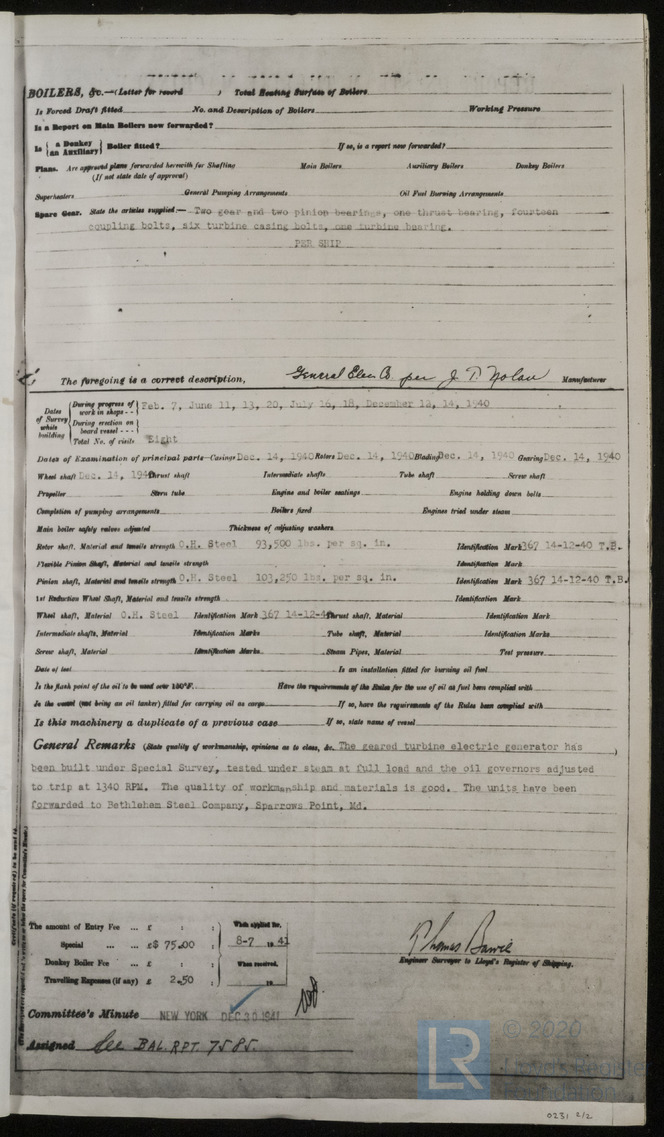 BOILERS, &c.—(Letter for record ) Total Heating Surface of Boilers
Is Forced Draft fitted No. and Description of Boilers Working Pressure
Is a Report on Main Boilers now forwarded?
Is { a Donkey / an Auxiliary } Boiler fitted? If so, is a report now forwarded?
Plans. Are approved plans forwarded herewith for Shafting Main Boilers Auxiliary Boilers Donkey Boilers
(If not state date of approval)
Superheaters General Pumping Arrangements Oil Fuel Burning Arrangements
Spare Gear. State the articles supplied:— Two gear and two pinion bearings, one thrust bearing, fourteen
coupling bolts, six turbine casing bolts, one turbine bearing.
PER SHIP
The foregoing is a correct description, General Elec Co. per J. T. Nolan Manufacturer
Dates of Survey while building
During progress of work in shops - - Feb. 7, June 11, 13, 20, July 16, 18, December 12, 14, 1940
During erection on board vessel - - -
Total No. of visits Eight
Dates of Examination of principal parts—Casings Dec. 14, 1940 Rotors Dec. 14, 1940 Blading Dec. 14, 1940 Gearing Dec. 14, 1940
Wheel shaft Dec. 14, 1940 Thrust shaft Intermediate shafts Tube shaft Screw shaft
Propeller Stern tube Engine and boiler seatings Engine holding down bolts
Completion of pumping arrangements Boilers fixed Engines tried under steam
Main boiler safety valves adjusted Thickness of adjusting washers
Rotor shaft, Material and tensile strength O.H. Steel 93,500 lbs. per sq. in. Identification Mark 367 14-12-40 T.B.
Flexible Pinion Shaft, Material and tensile strength Identification Mark
Pinion shaft, Material and tensile strength O.H. Steel 103,250 lbs. per sq. in. Identification Mark 367 14-12-40 T.B.
1st Reduction Wheel Shaft, Material and tensile strength Identification Mark
Wheel shaft, Material O.H. Steel Identification Mark 367 14-12-40 Thrust shaft, Material Identification Mark
Intermediate shafts, Material Identification Marks Tube shaft, Material Identification Marks
Screw shaft, Material Identification Marks Steam Pipes, Material Test pressure
Date of test Is an installation fitted for burning oil fuel
Is the flash point of the oil to be used over 150°F. Have the requirements of the Rules for the use of oil as fuel been complied with
Is the vessel (not being an oil tanker) fitted for carrying oil as cargo If so, have the requirements of the Rules been complied with
Is this machinery a duplicate of a previous case If so, state name of vessel
General Remarks (State quality of workmanship, opinions as to class, &c. The geared turbine electric generator has
been built under Special Survey, tested under steam at full load and the oil governors adjusted
to trip at 1340 RPM. The quality of workmanship and materials is good. The units have been
forwarded to Bethlehem Steel Company, Sparrows Point, Md.
The amount of Entry Fee ... £ : : When applied for,
Special ... ... £$ 75.00 : 8-7 19 41
Donkey Boiler Fee ... £ : : When received,
Travelling Expenses (if any) £ 2.50 19
Thomas Bowie
Engineer Surveyor to Lloyd's Register of Shipping.
Committee's Minute NEW YORK DEC 30 1941
Assigned See BAL. RPT. 7585.
LR
© 2020
Lloyd's Register
Foundation
0231 2/2